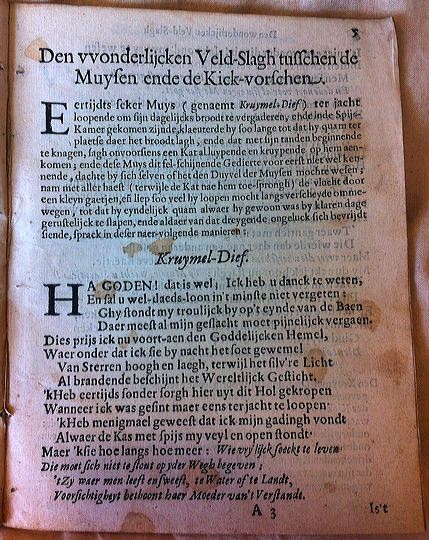 5
Den vvonderlijcken Veld-Slagh tusschen de
Muysen ende de Kick-vorschen.
Eertijdts seker Muys (genaemt Kruymel-Dief) ter jacht
loopende om sijn dagelijcks broodt te vergaderen, ende inde Spijs-
Kamer gekomen zijnde, klaeuterde hy soo lange tot dat hy quam ter
plaetse daer het broodt lagh, ende dat met sijn tanden beginnende
te knagen, sagh onvoorsiens een Kat alluypende en kruypende op hem aen-
komen; ende dese Muys dit fel-schijnende Gedierte voor eerst niet wel ken-
nende, dachte by sich selven of het den Duyvel der Muysen mochte wesen;
nam niet aller haest (terwijle de Kat nae hem toe-sprongh) de vlucht door
een kleyn gaetjen, en liep soo veel hy loopen mocht langs verscheyde omme-
wegen, tot dat hy eyndelijck quam alwaer hy gewoon was by klaren dage
gerustelijck te slapen, ende aldaer van dat dreygende ongeluck sich bevrijdt
siende, sprack in deser naer-volgende manieren:
Kruymel-Dief.
HA GODEN! dat is wel; Ick heb u danck te weten,
En sal u wel-daeds-loon in't minste niet vergeten:
Ghy stondt my troulijck by op't eynde van de Baen
Daer meest al mijn geslacht moet pijnelijck vergaen.
Dies prijs ick nu voort-aen den Goddelijcken Hemel,
Waer onder dat ick sie by nacht het soet gewemel
Van Sterren hoogh en laegh, terwijl het silv're Licht
Al brandende beschijnt het Wereltlijck Gesticht.
'kHeb eertijds sonder sorgh hier uyt dit Hol gekropen
Wanneer ick was gesint maer eens ter jacht te loopen.
'kHeb menigmael geweest dat ick mijn gadingh vondt
Alwaer de Kas met spijs my veyl en open stondt.
Maer 'ksie hoe langs hoe meer: Wie vry'lijck soeckt te leven
Die moet sich niet te stout op yder Wegh begeven;
'tZy waer men leeft en sweeft, te Water of te Landt,
Voorsichtigheyt bethoont haer Moeder van't Verstandt.
A 3
Is't